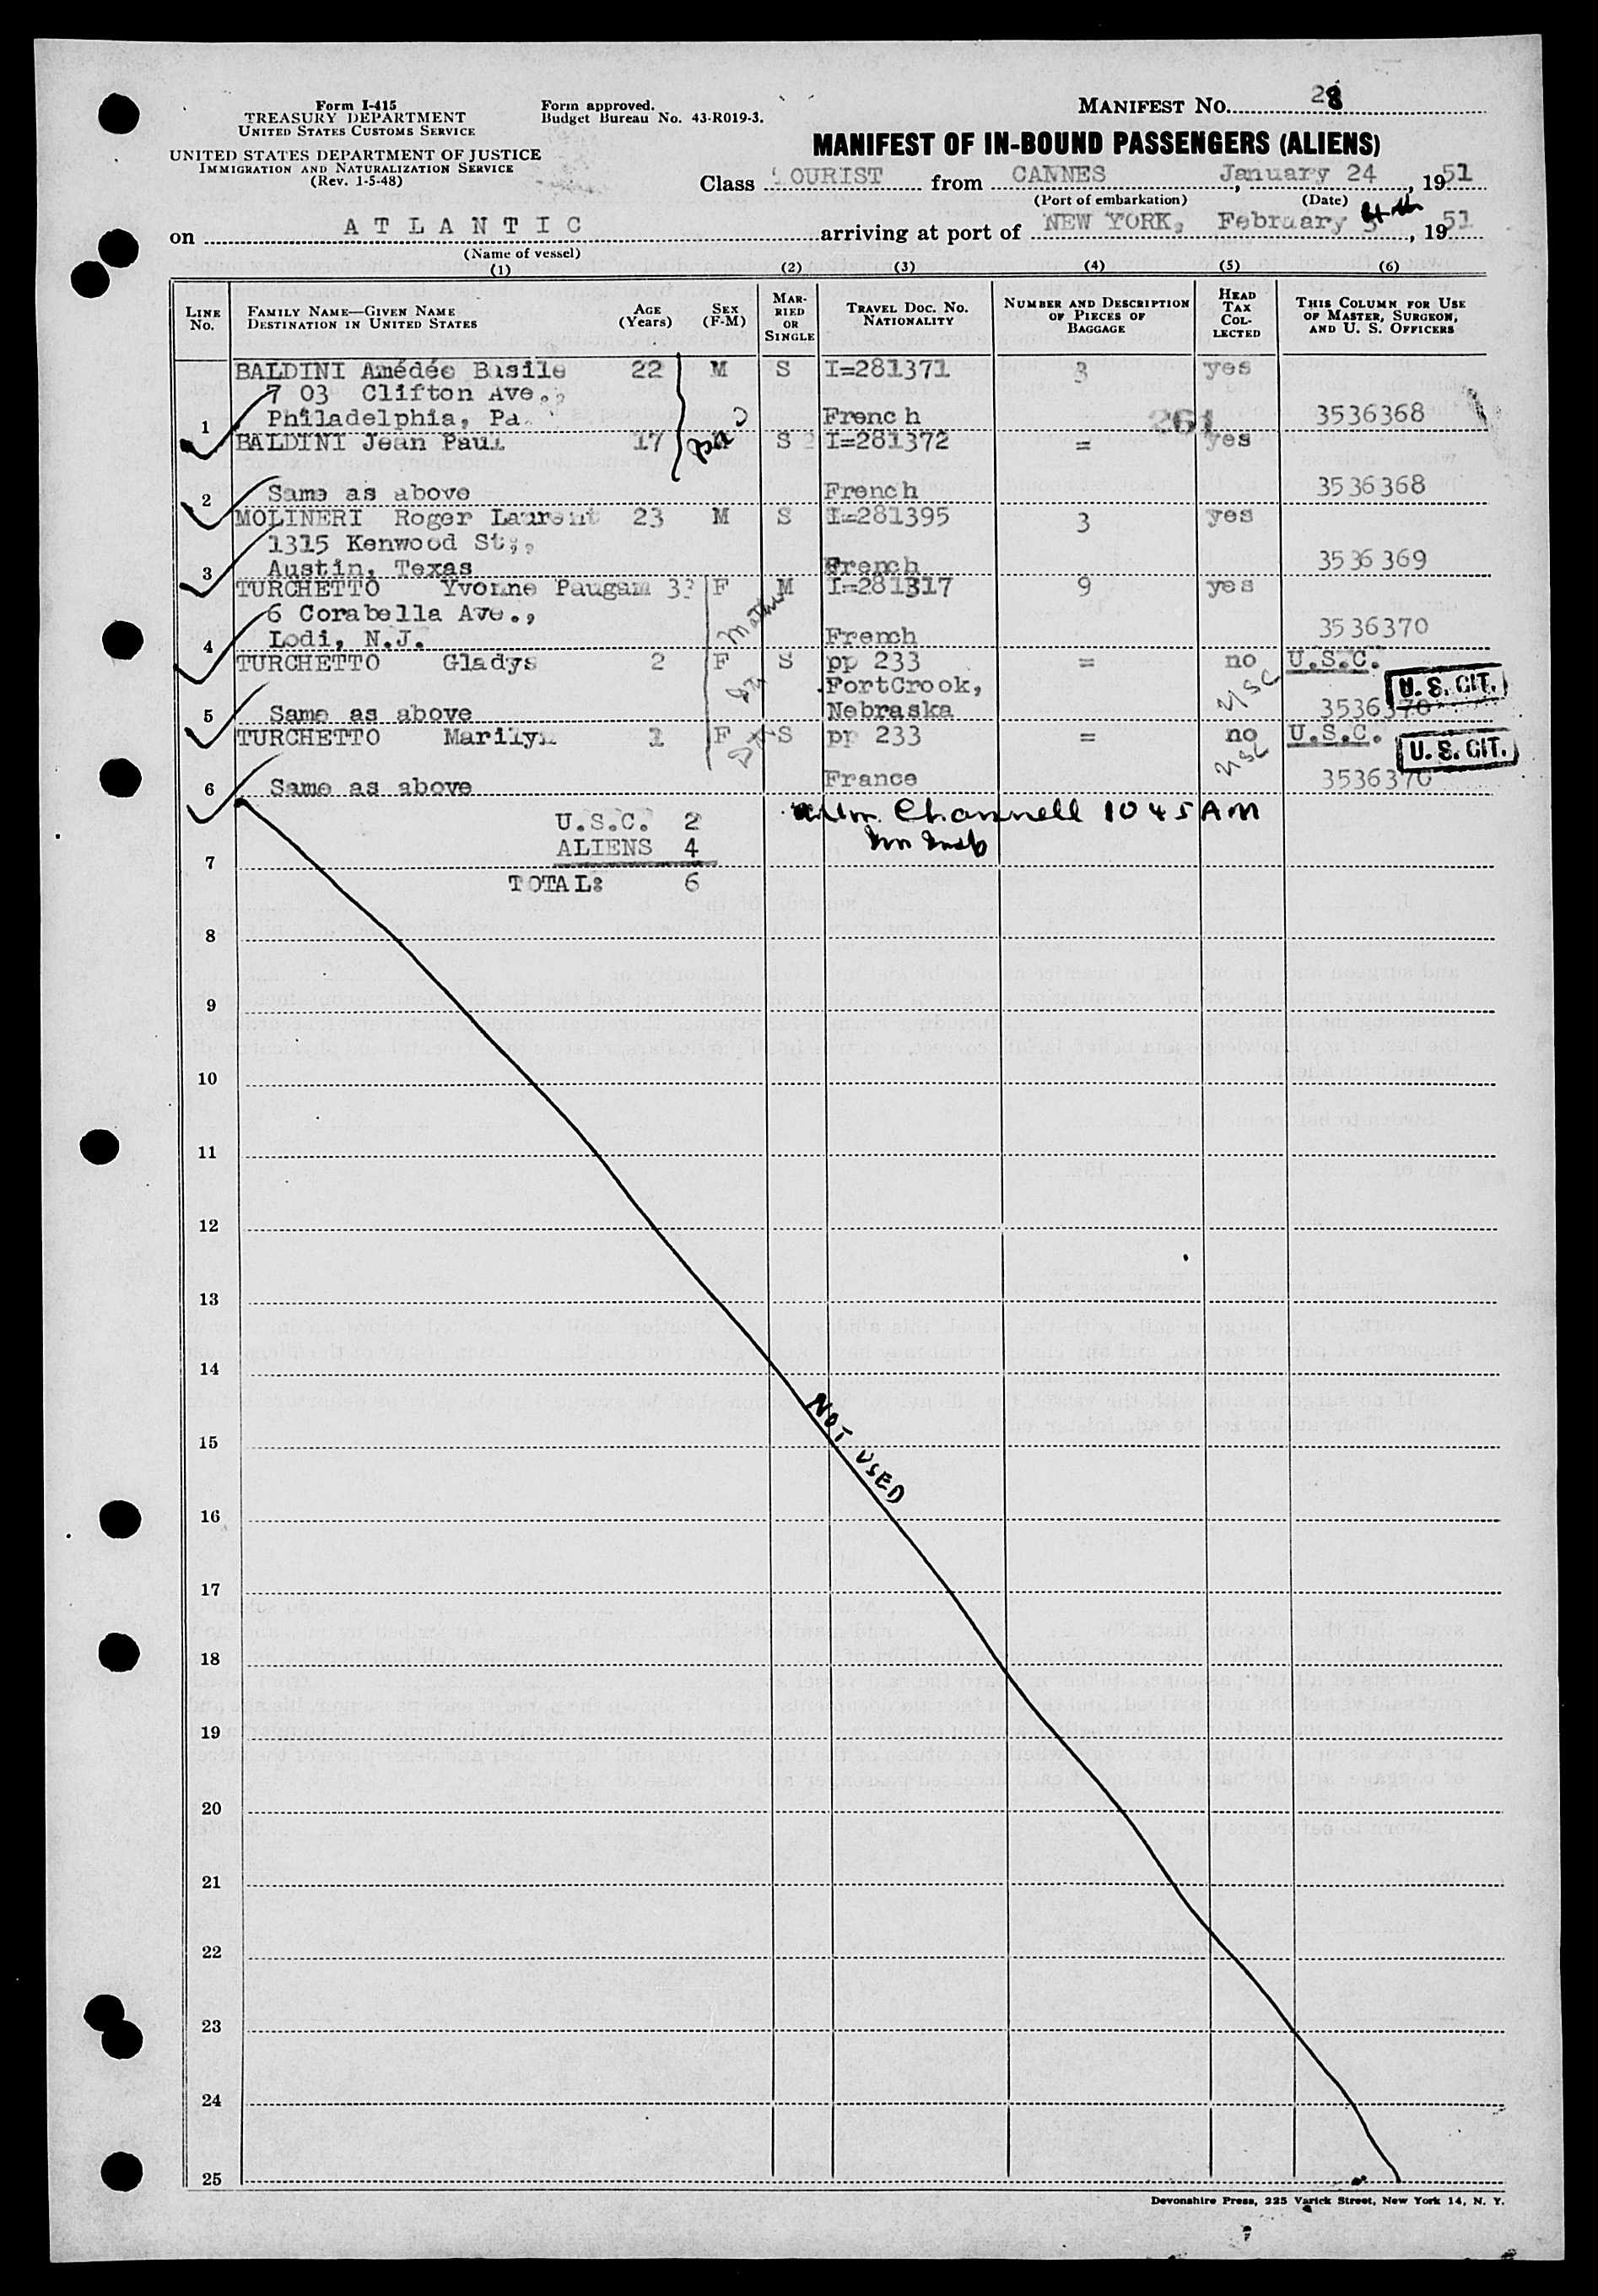 Form I-415
TREASURY DEPARTMENT
UNITED STATES CUSTOMS SERVICE
UNITED STATES DEPARTMENT OF JUSTICE
IMMIGRATION AND NATURALIZATION SERVICE
(Rev. 1-5-48)
Form approved.
Budget Bureau No. 43-R019-3.
MANIFEST No. 28
MANIFEST OF IN-BOUND PASSENGERS (ALIENS)
Class OURIST from CANNES, January 24, 1951
(Port of embarkation) (Date)
on ATLANTIC arriving at port of NEW YORK, February 4th, 1951
(Name of vessel)
(1) (2) (3) (4) (5) (6)
LINE No. FAMILY NAME—GIVEN NAME DESTINATION IN UNITED STATES AGE (Years) SEX (F-M) MARRIED OR SINGLE TRAVEL DOC. NO. NATIONALITY NUMBER AND DESCRIPTION OF PIECES OF BAGGAGE HEAD TAX COLLECTED THIS COLUMN FOR USE OF MASTER, SURGEON, AND U. S. OFFICERS
BALDINI Amédée Basile 22 M S I=281371 3 yes
7 03 Clifton Ave.,
1 Philadelphia, Pa. French 261 3536368
BALDINI Jean Paul 17 S I=281372 = yes
2 Same as above French 3536368
MOLINERI Roger Laurent 23 M S I=281395 3 yes
1315 Kenwood St;,
3 Austin, Texas French 3536369
TURCHETTO Yvonne Paugam 33 F M I=281317 9 yes
Mother
6 Corabella Ave.,
4 Lodi, N.J. French 3536370
TURCHETTO Gladys 2 F S pp 233 = no U.S.C.
FortCrook, USC U. S. CIT.
5 Same as above Nebraska 3536370
TURCHETTO Marilyn 1 F S pp 233 = no U.S.C.
USC U. S. CIT.
6 Same as above France 3536370
U.S.C. 2
Channell 10 45 AM
ALIENS 4
7
TOTAL: 6
8
9
10
11
12
13
14
NOT USED
15
16
17
18
19
20
21
22
23
24
25
Devonshire Press, 225 Varick Street, New York 14, N. Y.